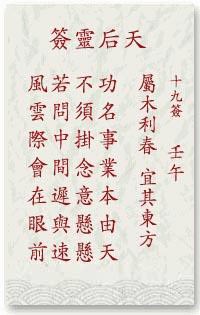 天后靈簽
十九簽 壬午
屬木利春 宜其東方
功名事業本由天
不須掛念意懸懸
若問中間遲與速
風雲際會在眼前